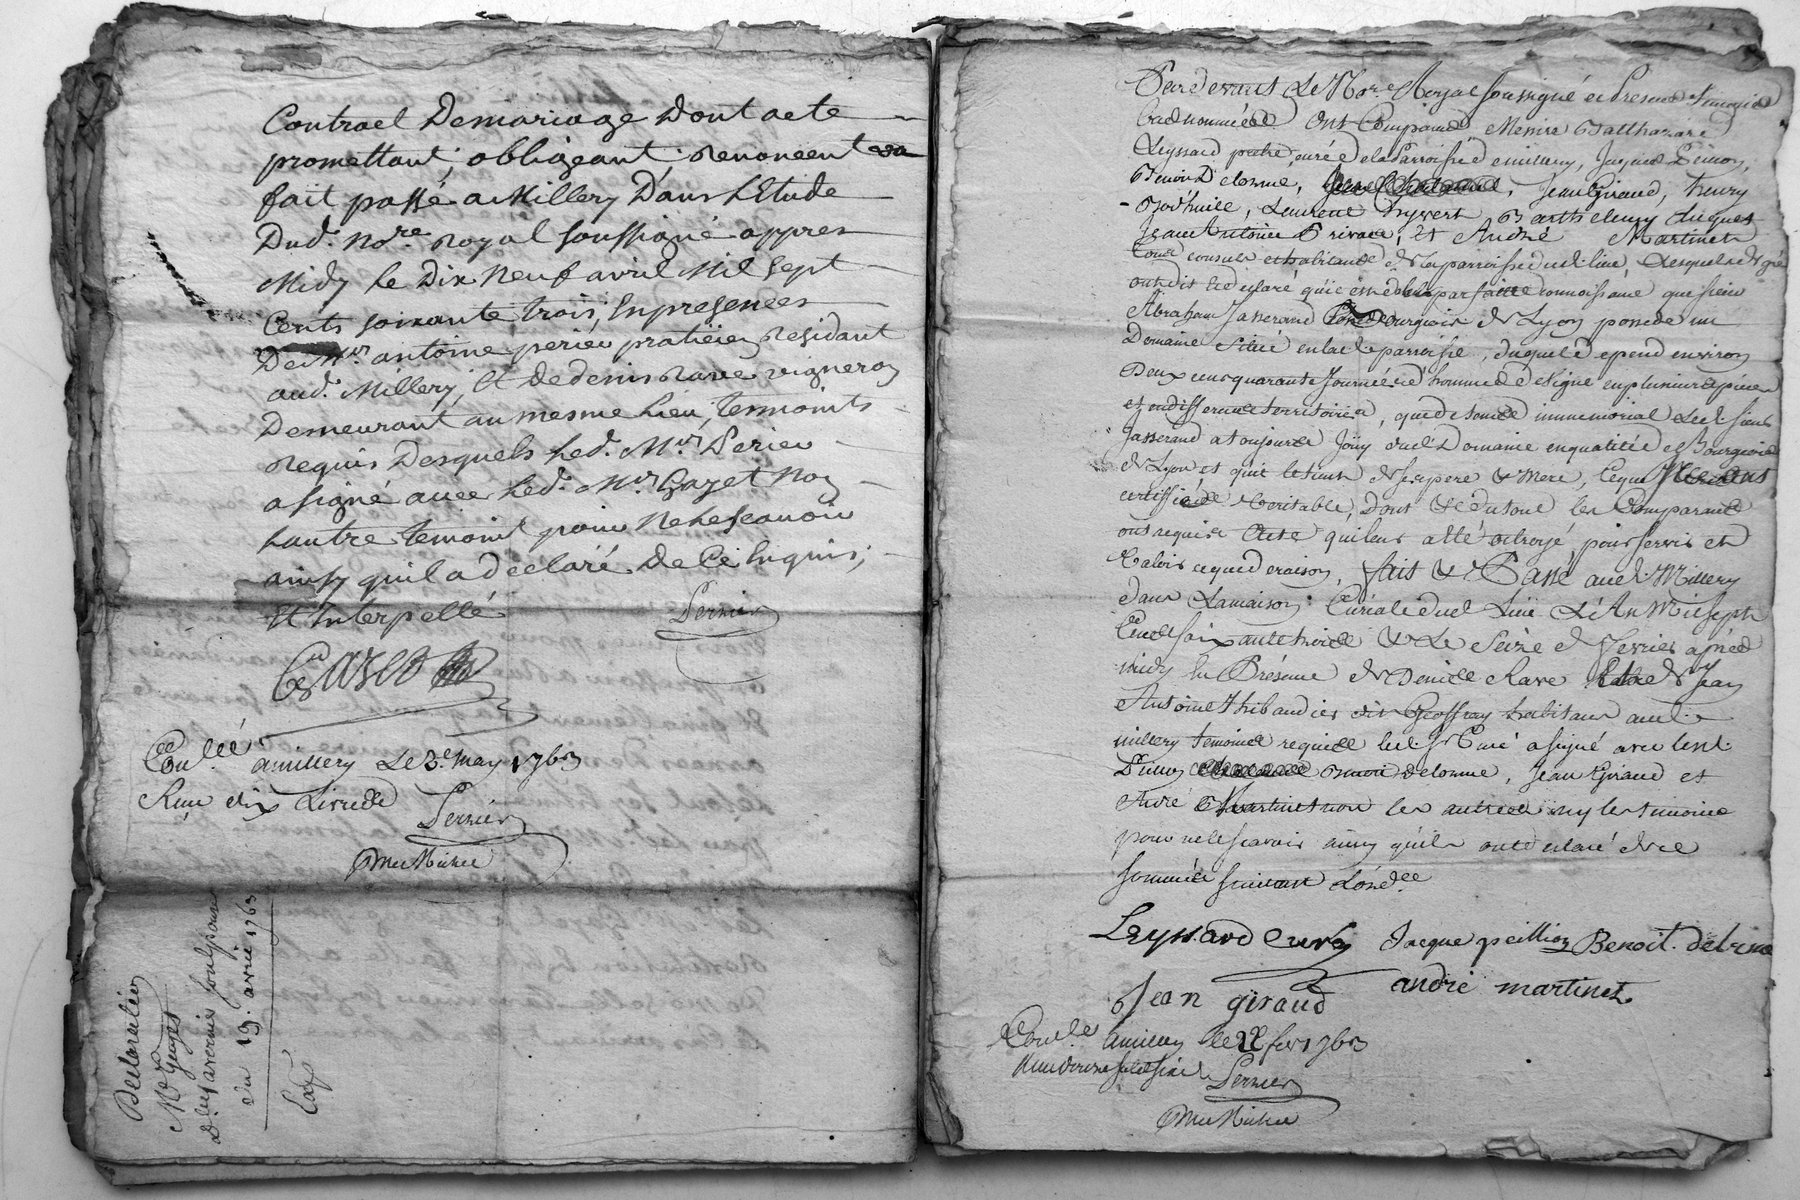 Contract Demariage Dont acte
promettant, obligeant renonceent &a
fait passé a Millery Dans L'Etude
Dud. No.re Royal soussigné appres
Midy le Dix Neuf avril Mil sept
Cents soixante trois, En presences
De Mr antoine perier praticien Residant
aud. Millery, Et de denis Rave vigneron
Demeurant au mesme Lieu, Temoints
Requis Desquels led. Mr. Perier
a signé avec led. Mr. Gayet Non
Lautre Temoint pour Ne le scavoir
ainsy quil a declaré de Ce Enquis,
Et Interpellé
Perrier
Con.llé a millery Le 3.e may 1763
Reçu dix Livres
Perrier
Declaration
Mr Gayet
du 19. avril 1763
Pardevant Le No.re Royal soussigné et Presents Temoins
bas nommés Ont Comparu Messire Balthazard
Leyssard pretre curé de la Parroisse de millery, Jaques
Benoit Delorme, Jean Giraud, henry
Laurent hyvert Barthelemy
Jean Antoine Privat, Et André Martinet
tous consuls et habitants de la parroisse dud. lieu, Lesquels de gré
ont dit et declaré qu'il est de leur parfaite connoissance que sieur
Abraham Jasserand Bourgeois de Lyon possede un
Domaine Situé en lad. parroisse, duquel depend environ
Deux cens quarante Journées d'hommes de Vigne en plusieurs pieces
et en differents territoires, que de tems immemorial led. sieur
Jasserand a toujours Jouy dud. Domaine en qualité de Bourgeois
de Lyon et qu'il le tient de ses pere & Mere, Ce que
certiffié Veritable, Dont & du tout les Comparants
ont requis Acte qui leur a eté octroyé, pour servir et
Valoir ce que de raison, fait & Passé aud. Millery
dans La maison Curiale dud. Lieu L'An Mil sept
Cents soixante trois & Le Seize Fevrier après
midy En Présence de Denis Rave & de Jean
Antoine Thibaudier dit Geoffray habitans aud.
millery temoins requis led. sr Curé a signé avec led.
Benoit delorme, Jean Giraud et
André Martinet non les autres ny les temoins
pour ne le scavoir ainsy qu'ils ont declaré de ce
sommés suivant L'ord.ce
Leyssard curé Jacque peillion Benoit delorme
Jean giraud andré martinet
Con.lé a millery le 22 fev. 1763
Perrier